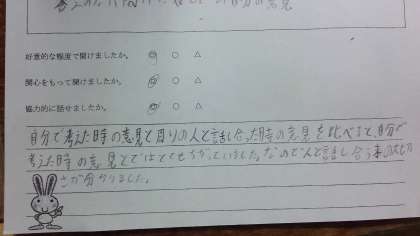 考えの 自分の意見
好意的な態度で聞けましたか。 ◎ ○ △
関心をもって聞けましたか。 ◎ ○ △
協力的に話せましたか。 ◎ ○ △
自分で考えた時の意見と周りの人と話し合った時の意見を比べると、自分で
考えた時の意見とではとてもちがっていました。なので人と話し合う事の大切
さが分かりました。